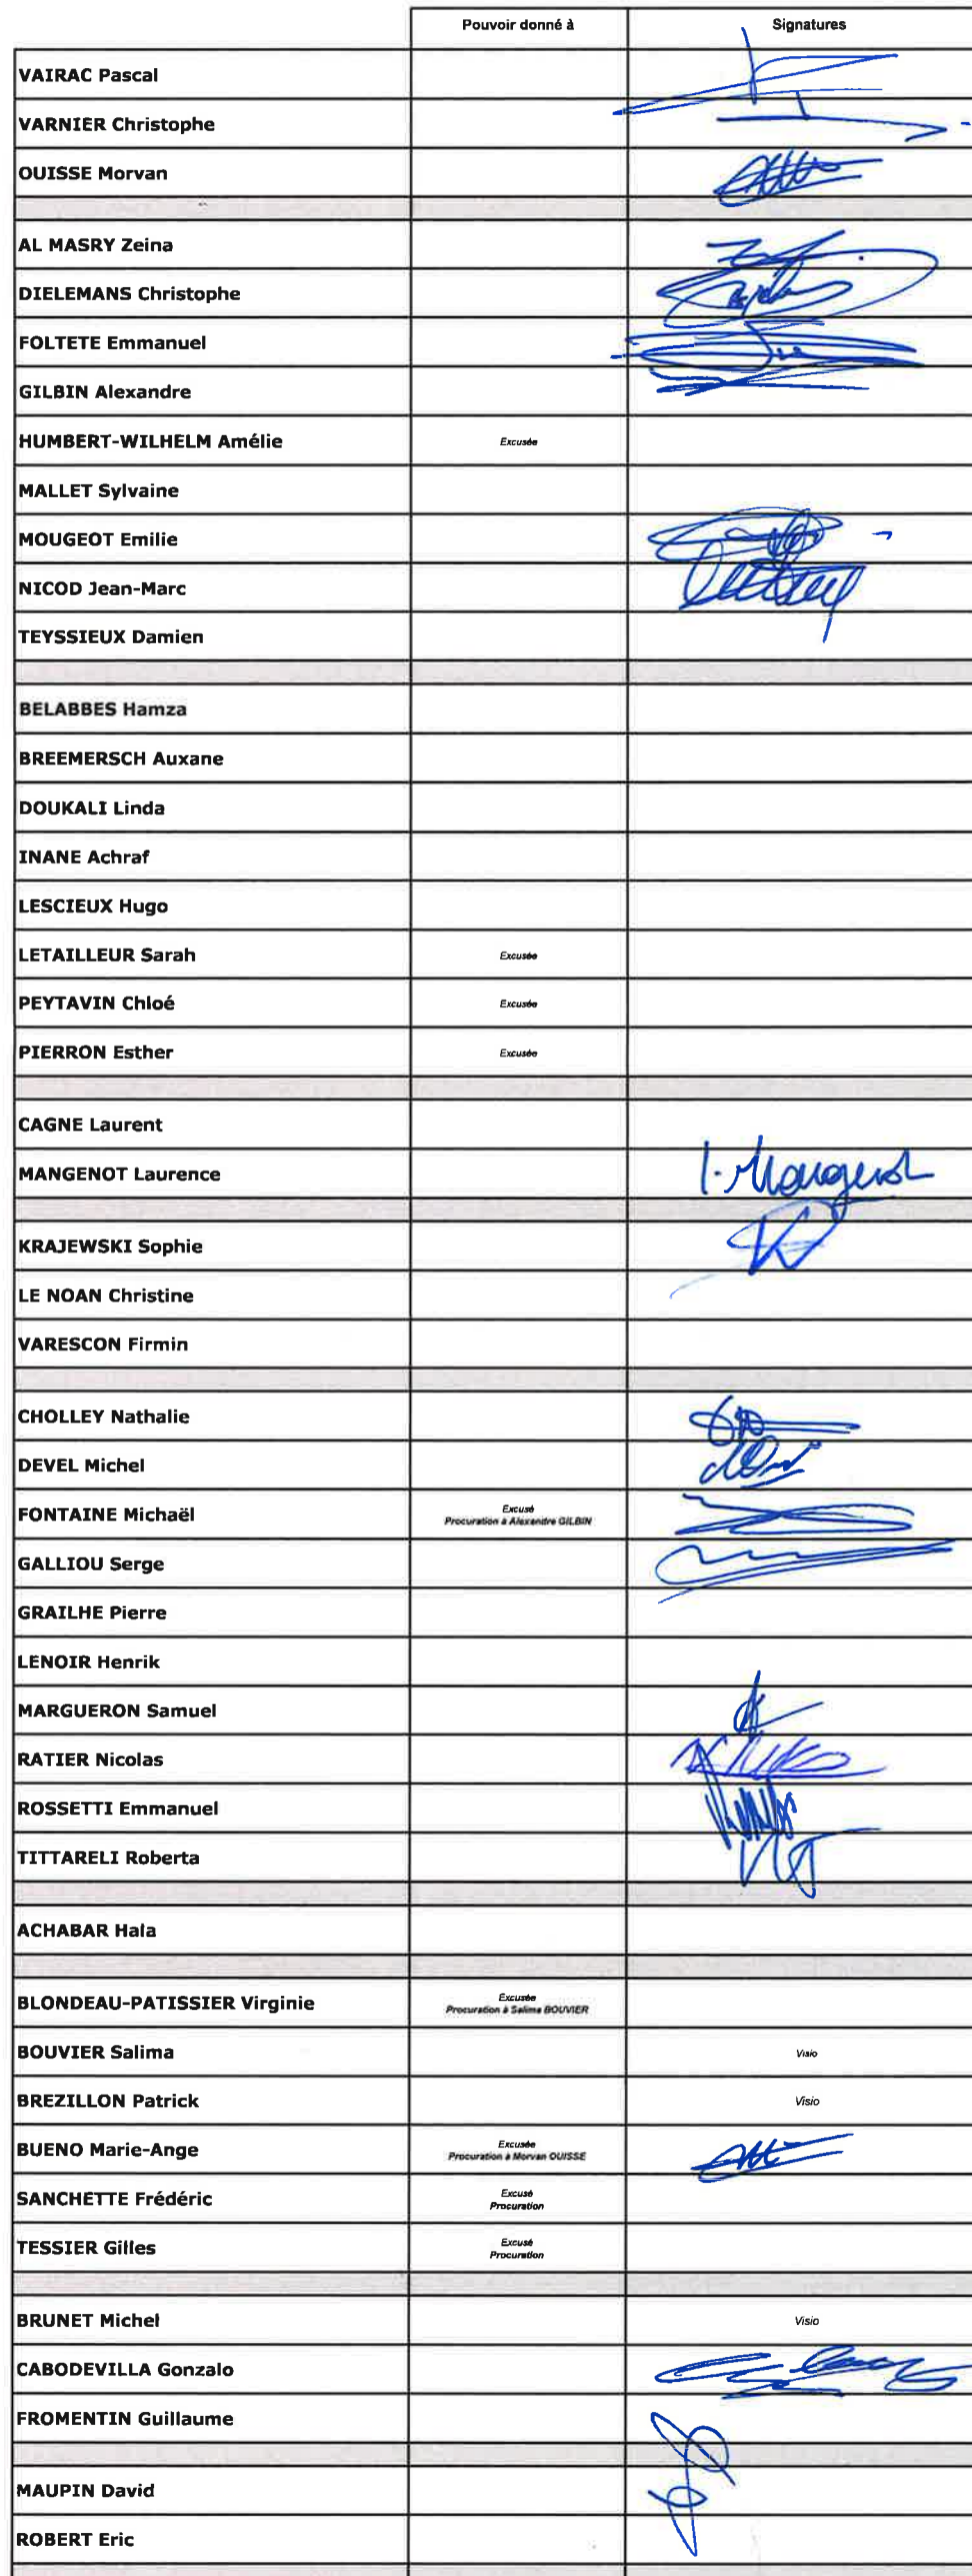 Pouvoir donné à Signatures
VAIRAC Pascal
VARNIER Christophe
OUISSE Morvan
AL MASRY Zeina
DIELEMANS Christophe
FOLTETE Emmanuel
GILBIN Alexandre
HUMBERT-WILHELM Amélie Excusée
MALLET Sylvaine
MOUGEOT Emilie
NICOD Jean-Marc
TEYSSIEUX Damien
BELABBES Hamza
BREEMERSCH Auxane
DOUKALI Linda
INANE Achraf
LESCIEUX Hugo
LETAILLEUR Sarah Excusée
PEYTAVIN Chloé Excusée
PIERRON Esther Excusée
CAGNE Laurent
MANGENOT Laurence l. Mangenot
KRAJEWSKI Sophie
LE NOAN Christine
VARESCON Firmin
CHOLLEY Nathalie
DEVEL Michel
FONTAINE Michaël Excusé
Procuration à Alexandre GILBIN
GALLIOU Serge
GRAILHE Pierre
LENOIR Henrik
MARGUERON Samuel
RATIER Nicolas
ROSSETTI Emmanuel
TITTARELI Roberta
ACHABAR Hala
BLONDEAU-PATISSIER Virginie Excusée
Procuration à Salima BOUVIER
BOUVIER Salima Visio
BREZILLON Patrick Visio
BUENO Marie-Ange Excusée
Procuration à Morvan OUISSE
SANCHETTE Frédéric Excusé
Procuration
TESSIER Gilles Excusé
Procuration
BRUNET Michel Visio
CABODEVILLA Gonzalo
FROMENTIN Guillaume
MAUPIN David
ROBERT Eric